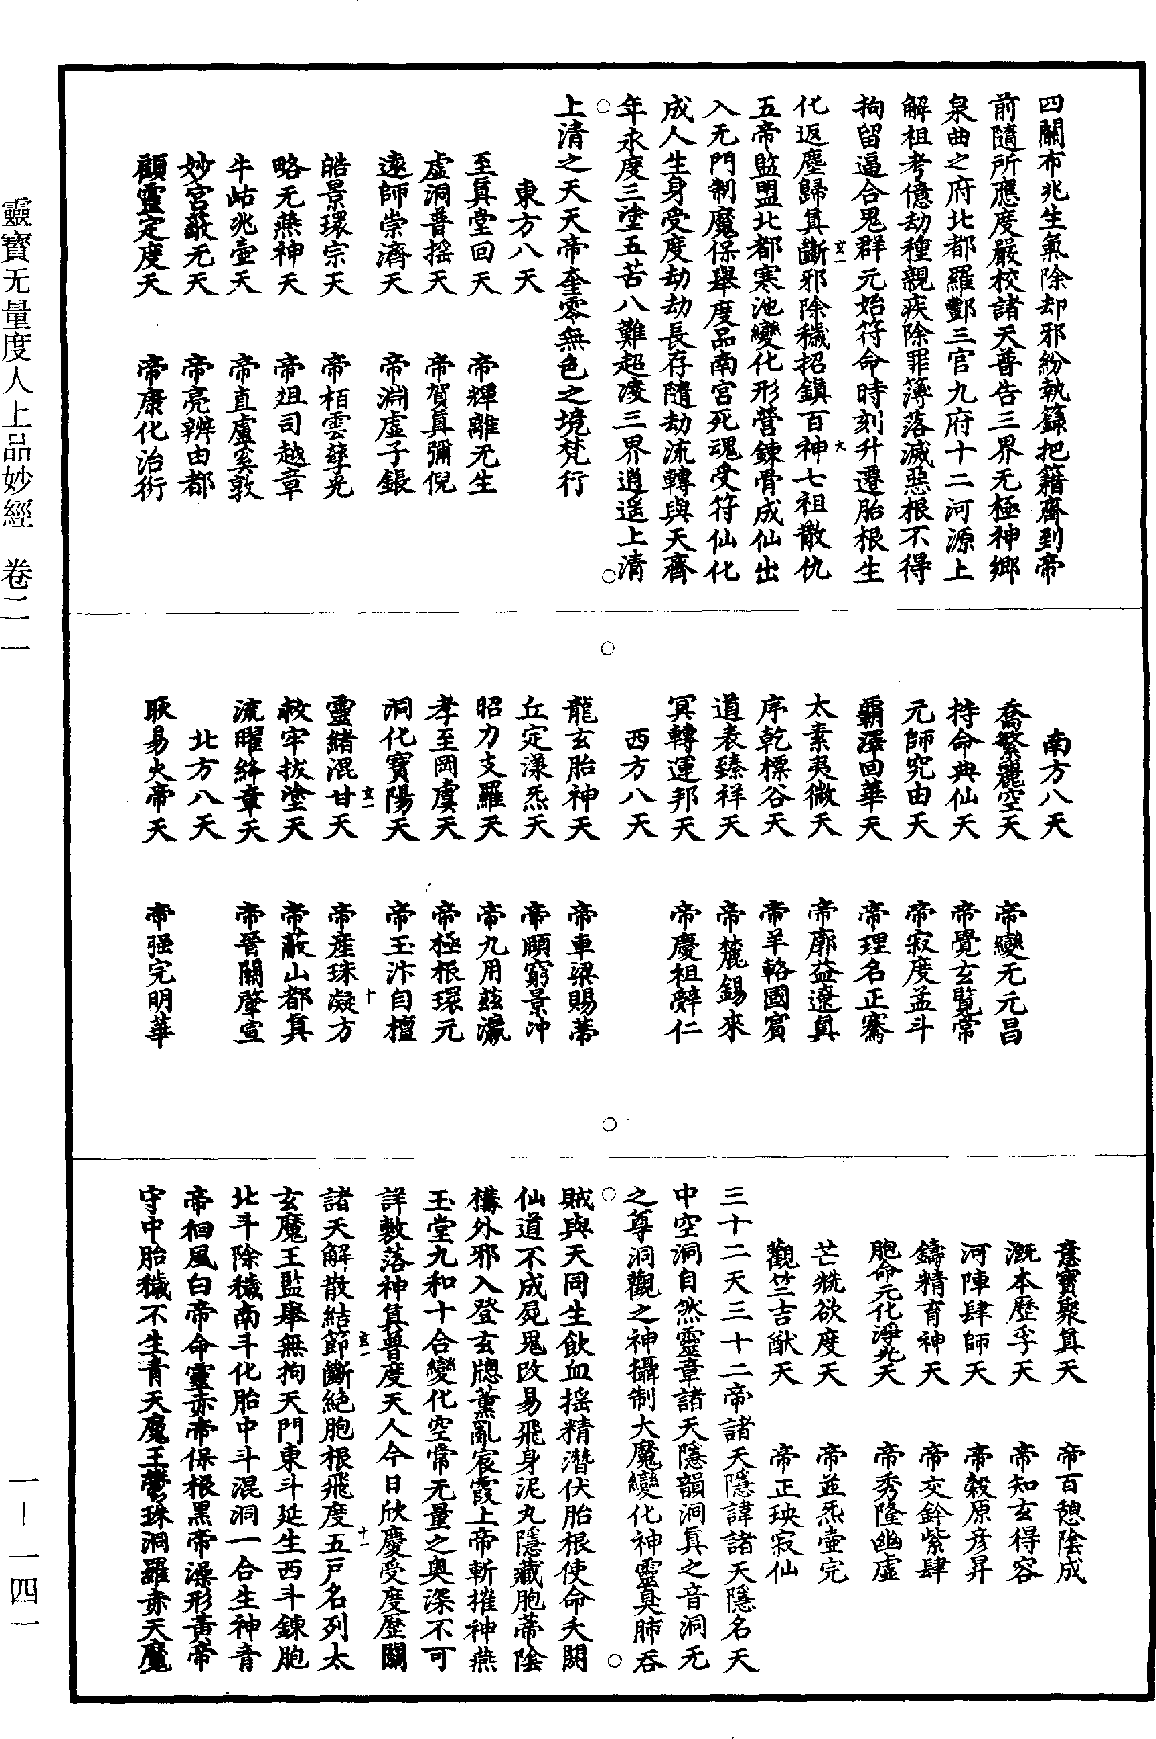 四關布兆生氣除却邪紛執籙把籍齊到帝
前隨所應度嚴校諸天普告三界无極神鄉
泉曲之府北都羅酆三官九府十二河源上
解祖考億劫種親疾除罪簿落滅惡根不得
拘留逼合鬼群元始符命時刻升遷胎根生
化返塵歸真斷邪除穢招鎮百神七祖散仇
五帝監盟北都寒池變化形營鍊骨成仙出
入无門制魔保舉度品南宮死魂受符仙化
成人生身受度劫劫長存隨劫流轉與天齊
年永度三塗五苦八難超凌三界逍遥上清
上清之天天帝奎零無色之境梵行
東方八天
至真堂回天 帝輝離无生
虛洞普摇天 帝賀真彌倪
遠師崇濟天 帝淵虛子鋹
皓景環宗天 帝栢雲孳羌
略无燕神天 帝爼司越章
牛岵兆壷天 帝直盧奚敦
妙宮敵无天 帝亮辨由都
顧靈定度天 帝康化治衍
南方八天
喬繁麗空天 帝變无元昌
持命典仙天 帝覺玄覽常
元師究由天 帝寂度孟斗
霸澤回華天 帝理名正騫
太素夷微天 帝廓益遼真
序乾標谷天 帝羊輅國賓
道表臻祥天 帝麓錫來
冥轉運邦天 帝慶祖辭仁
西方八天
龍玄胎神天 帝車梁賜蒂
丘定漾炁天 帝頤窮景冲
昭力支羅天 帝九用兹瀛
孝至岡虞天 帝極根環元
洞化寶陽天 帝玉汴自檀
靈緒混甘天 帝産珠凝方
敕牢拔塗天 帝蔽山都真
流曜絳章天 帝晉關肇宣
北方八天
耿易火帝天 帝强完明華
意寶聚真天 帝百憩陰成
溉本歷孚天 帝知玄得容
河陣肆師天 帝穀原彦昇
鑄精育神天 帝交鈴紫肆
胞命元化淨兆天 帝秀隆幽虛
芒毓欲度天 帝並炁壷完
觀竺吉猷天 帝正珙寂仙
三十二天三十二帝諸天隱諱諸天隱名天
中空洞自然靈章諸天隱韻洞真之音洞无
之尊洞觀之神攝制大魔變化神靈真肺吞
賊與天同生飲血摇精潜伏胎根使命夭閼
仙道不成死鬼改易飛身泥丸隱藏胞蒂陰
搆外邪入登玄牕薰亂宸霞上帝斬摧神燕
玉堂九和十合變化空常无量之奥深不可
詳敷落神真普度天人今日欣慶受度歷關
諸天解散結節斷絶胞根飛度五戸名列太
玄魔王監舉無拘天門東斗延生西斗鍊胞
北斗除穢南斗化胎中斗混洞一合生神青
帝徊風白帝命靈赤帝保根黑帝澡形黃帝
守中胎穢不生青天魔王鬱珠洞羅赤天魔
玄一
六
玄一
十
玄一
十一
靈寶无量度人上品妙經 卷二一
一—一四一